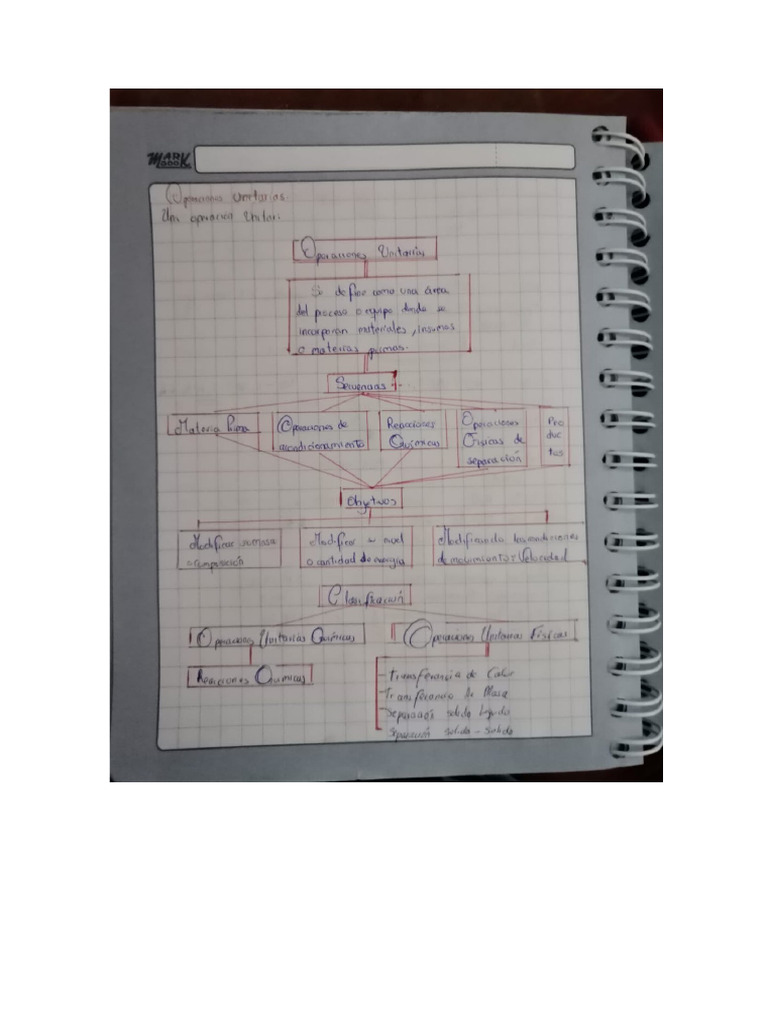 MARK
BOOK
Operaciones Unitarias
Una operación Unitar.
Operaciones Unitarias
Se define como una área
del proceso o equipo donde se
incorporan materiales, Insumos
o materias primas.
Secuencias
Materia Prima
Operaciones de
acondicionamiento
Reacciones
Químicas
Operaciones
Físicas de
separación
Pro
duc
tos
Objetivos
Modificar su masa
o composición
Modificar el nivel
o cantidad de energía
Modificando las condiciones
de movimiento y Velocidad
Clasificación
Operaciones Unitarias Químicas
Operaciones Unitarias Físicas
Reacciones Químicas
- Transferencia de Calor
- Transferencia de Masa
- Separación solido liquido
Separación solido - solido